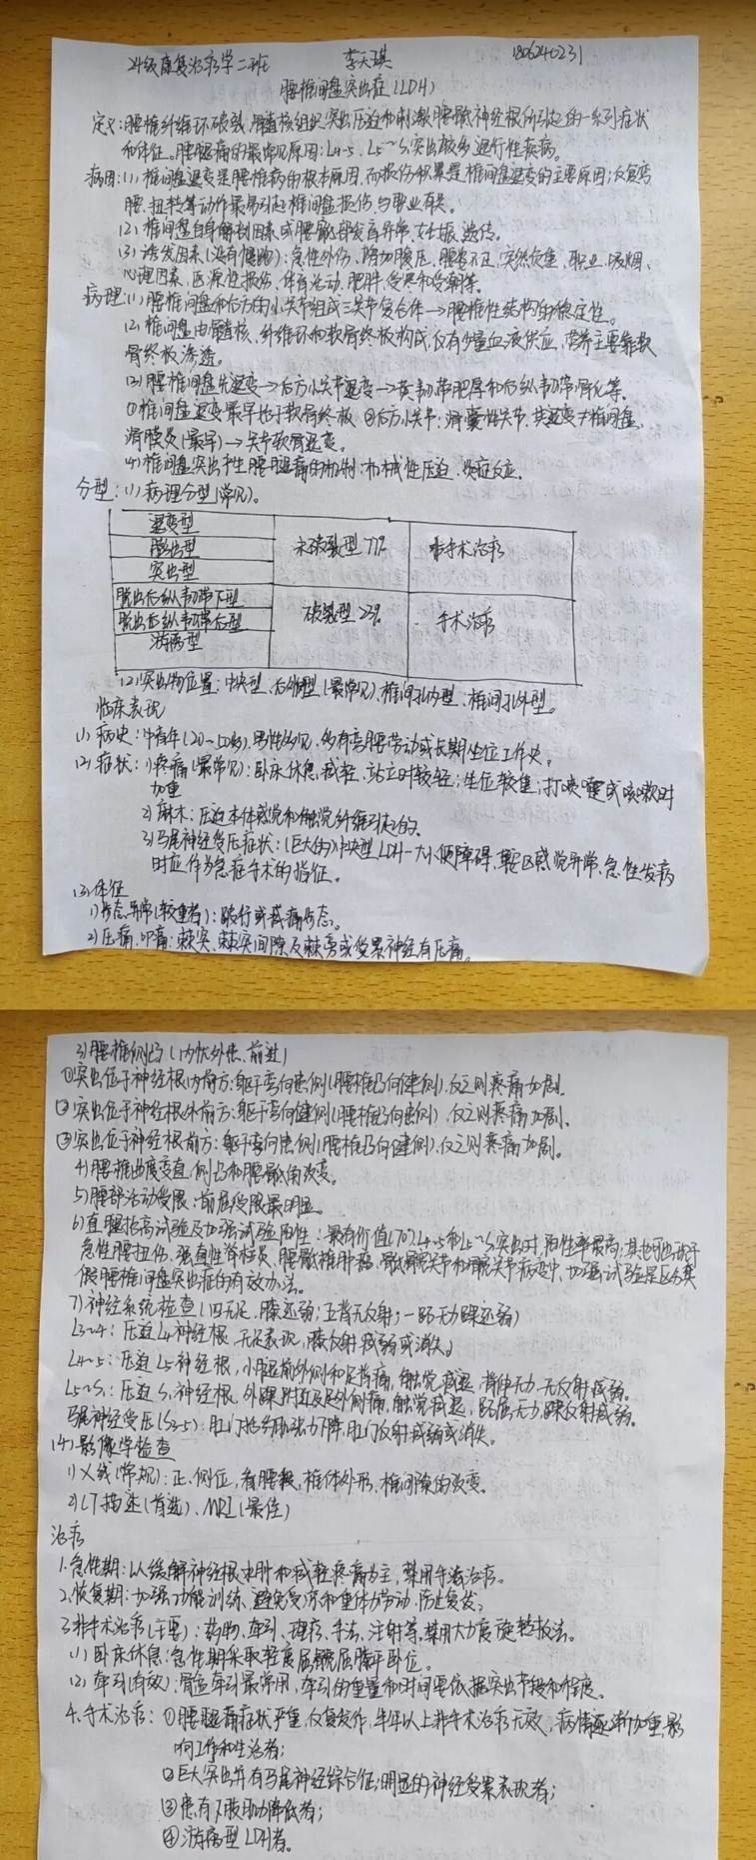 24级康复治疗学二班 李天琪 1806240231
腰椎间盘突出症(LDH)
定义:腰椎纤维环破裂,髓核组织突出压迫和刺激腰骶神经根所引起的一系列症状
和体征。腰腿痛的最常见原因:L4-5、L5~S1突出较多 退行性疾病。
病因:(1)椎间盘退变是腰椎病的根本原因,而损伤积累是椎间盘退变的主要原因;反复弯
腰、扭转等动作最易引起椎间盘损伤 与职业有关。
(2)椎间盘自身解剖因素或腰骶部发育异常、妊娠、遗传。
(3)诱发因素(没有慢跑):急性外伤、增加腹压、腰姿不正、突然负重、职业、吸烟、
心理因素、医源性损伤、体育活动、肥胖、受寒和受潮等。
病理:(1)腰椎间盘和后方的小关节组成三关节复合体→腰椎性结构的稳定性。
(2)椎间盘由髓核、纤维环和软骨终板构成,仅有少量血液供应,营养主要靠软
骨终板渗透。
(3)腰椎间盘先退变→后方小关节退变→黄韧带肥厚和后纵韧带骨化等。
①椎间盘退变最早始于软骨终板 ②后方小关节:滑囊性关节,其退变≠椎间盘,
滑膜炎(最早)→关节软骨退变。
(4)椎间盘突出产生腰腿痛的机制:机械性压迫、炎症反应。
分型:(1)病理分型(常见)。
退变型
膨出型 未破裂型 77% 非手术治疗
突出型
脱出后纵韧带下型
脱出后纵韧带后型 破裂型 23% 手术治疗
游离型
(2)突出物位置:中央型、后外侧型(最常见)、椎间孔内型、椎间孔外型。
临床表现
(1)病史:中青年(20~50多),男性多见,多有弯腰劳动或长期坐位工作史。
(2)症状:1)疼痛(最常见):卧床休息,减轻,站立时较轻;坐位较重;打喷嚏或咳嗽时
加重
2)麻木:压迫本体感觉和触觉纤维引起的。
3)马尾神经受压症状:(巨大的)中央型LDH-大小便障碍、鞍区感觉异常、急性发病
时应作为急症手术的指征。
(3)体征
1)步态异常(较重者):跛行或减痛步态。
2)压痛、叩痛:棘突、棘突间隙及棘旁或受累神经有压痛。
3)腰椎侧凸(内伏外健、前进)
①突出位于神经根内前方:躯干弯向患侧(腰椎凸向健侧),反之则疼痛加剧。
②突出位于神经根外前方:躯干弯向健侧(腰椎凸向患侧),反之则疼痛加剧。
③突出位于神经根前方:躯干弯向患侧(腰椎凸向健侧),反之则疼痛加剧。
4)腰椎曲度变直、侧凸和腰骶角改变。
5)腰部活动受限:前屈受限最明显。
6)直腿抬高试验及加强试验阳性:最有价值(70°)L4-5和L5~S1突出时,阳性率最高;其也可也现于
急性腰扭伤、强直性脊柱炎、腰骶椎肿瘤、骶髂关节和髋关节病变中,加强试验是区分真
假腰椎间盘突出症的有效办法。
7)神经系统检查(四无足,膝还弱;五背无反射;一跖无力踝还弱)
L3~4:压迫L4神经根,无足表现,膝反射减弱或消失。
L4~5:压迫L5神经根,小腿前外侧和足背痛,触觉减退,背伸无力,无反射减弱。
L5~S1:压迫S1神经根,外踝附近及足外侧痛,触觉减退,跖屈无力,踝反射减弱。
马尾神经受压(S3-5):肛门括约肌张力下降,肛门反射减弱或消失。
(4)影像学检查
1)X线(常规):正、侧位,看腰椎、椎体外形、椎间隙的改变。
2)CT描述(首选)、MRI(最佳)
治疗
1.急性期:以缓解神经根水肿和减轻疼痛为主,禁用手法治疗。
2.恢复期:加强功能训练、避免受凉和重体力劳动、防止复发。
3.非手术治疗(主要):药物、牵引、理疗、手法、注射等,禁用大力度旋转扳法。
(1)卧床休息:急性期采取轻度屈髋屈膝平卧位。
(2)牵引(有效):骨盆牵引最常用,牵引的重量和时间要依据突出节段和程度。
4.手术治疗:①腰腿痛症状严重,反复发作,半年以上非手术治疗无效,病情逐渐加重,影
响工作和生活者;
②巨大突出并有马尾神经综合征,明显的神经受累表现者;
③患有下肢肌力降低者;
④游离型LDH者。